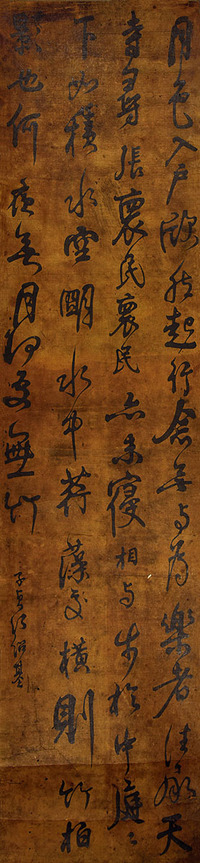 月色入戶欣然起行念無与為樂者沽承天
寺尋張褱民褱民亦未寑相与步於中庭〻
下如積水空明水中荇藻交横則竹柏
影也何夜無月何處無竹
子貞何紹基